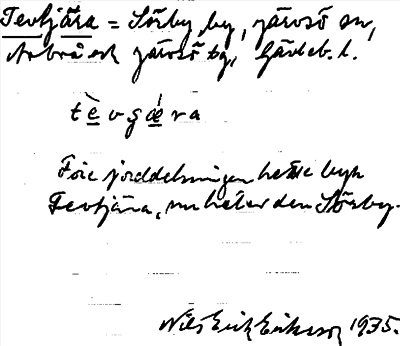 Tevtjära = Sörby by, Järvsö sn,
Arbrå och Järvsö tg, Gävleb. l.
tèvgǽra
Före jorddelningen hette byn
Tevtjära, nu heter den Sörby.
Nils Erik Eriksson 1935.